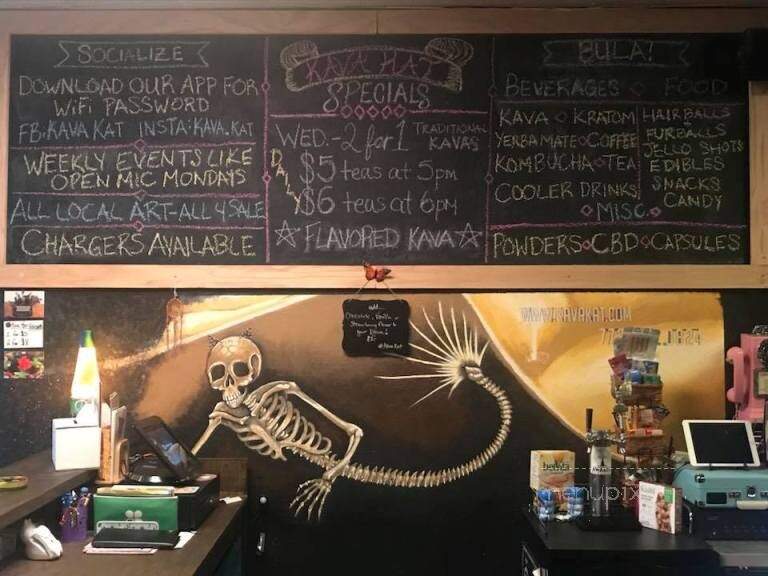 SOCIALIZE
DOWNLOAD OUR APP FOR
WIFI PASSWORD
FB:KAVA KAT INSTA:KAVA.KAT
WEEKLY EVENTS LIKE
OPEN MIC MONDAYS
ALL LOCAL ART-ALL 4 SALE
CHARGERS AVAILABLE
KAVA HAT
SPECIALS
WED.-2 for 1 TRADITIONAL
KAVAS
DAILY
$5 teas at 5pm
$6 teas at 6pm
FLAVORED KAVA
BULA!
BEVERAGES FOOD
KAVA KRATOM
YERBA MATE COFFEE
KOMBUCHA TEA
COOLER DRINKS
HAIRBALLS
FURBALLS
JELLO SHOTS
EDIBLES
SNACKS
CANDY
MISC.
POWDERS CBD CAPSULES
add...
Chocolate, Vanilla or
WWW.KAVAKAT.COM
menupix